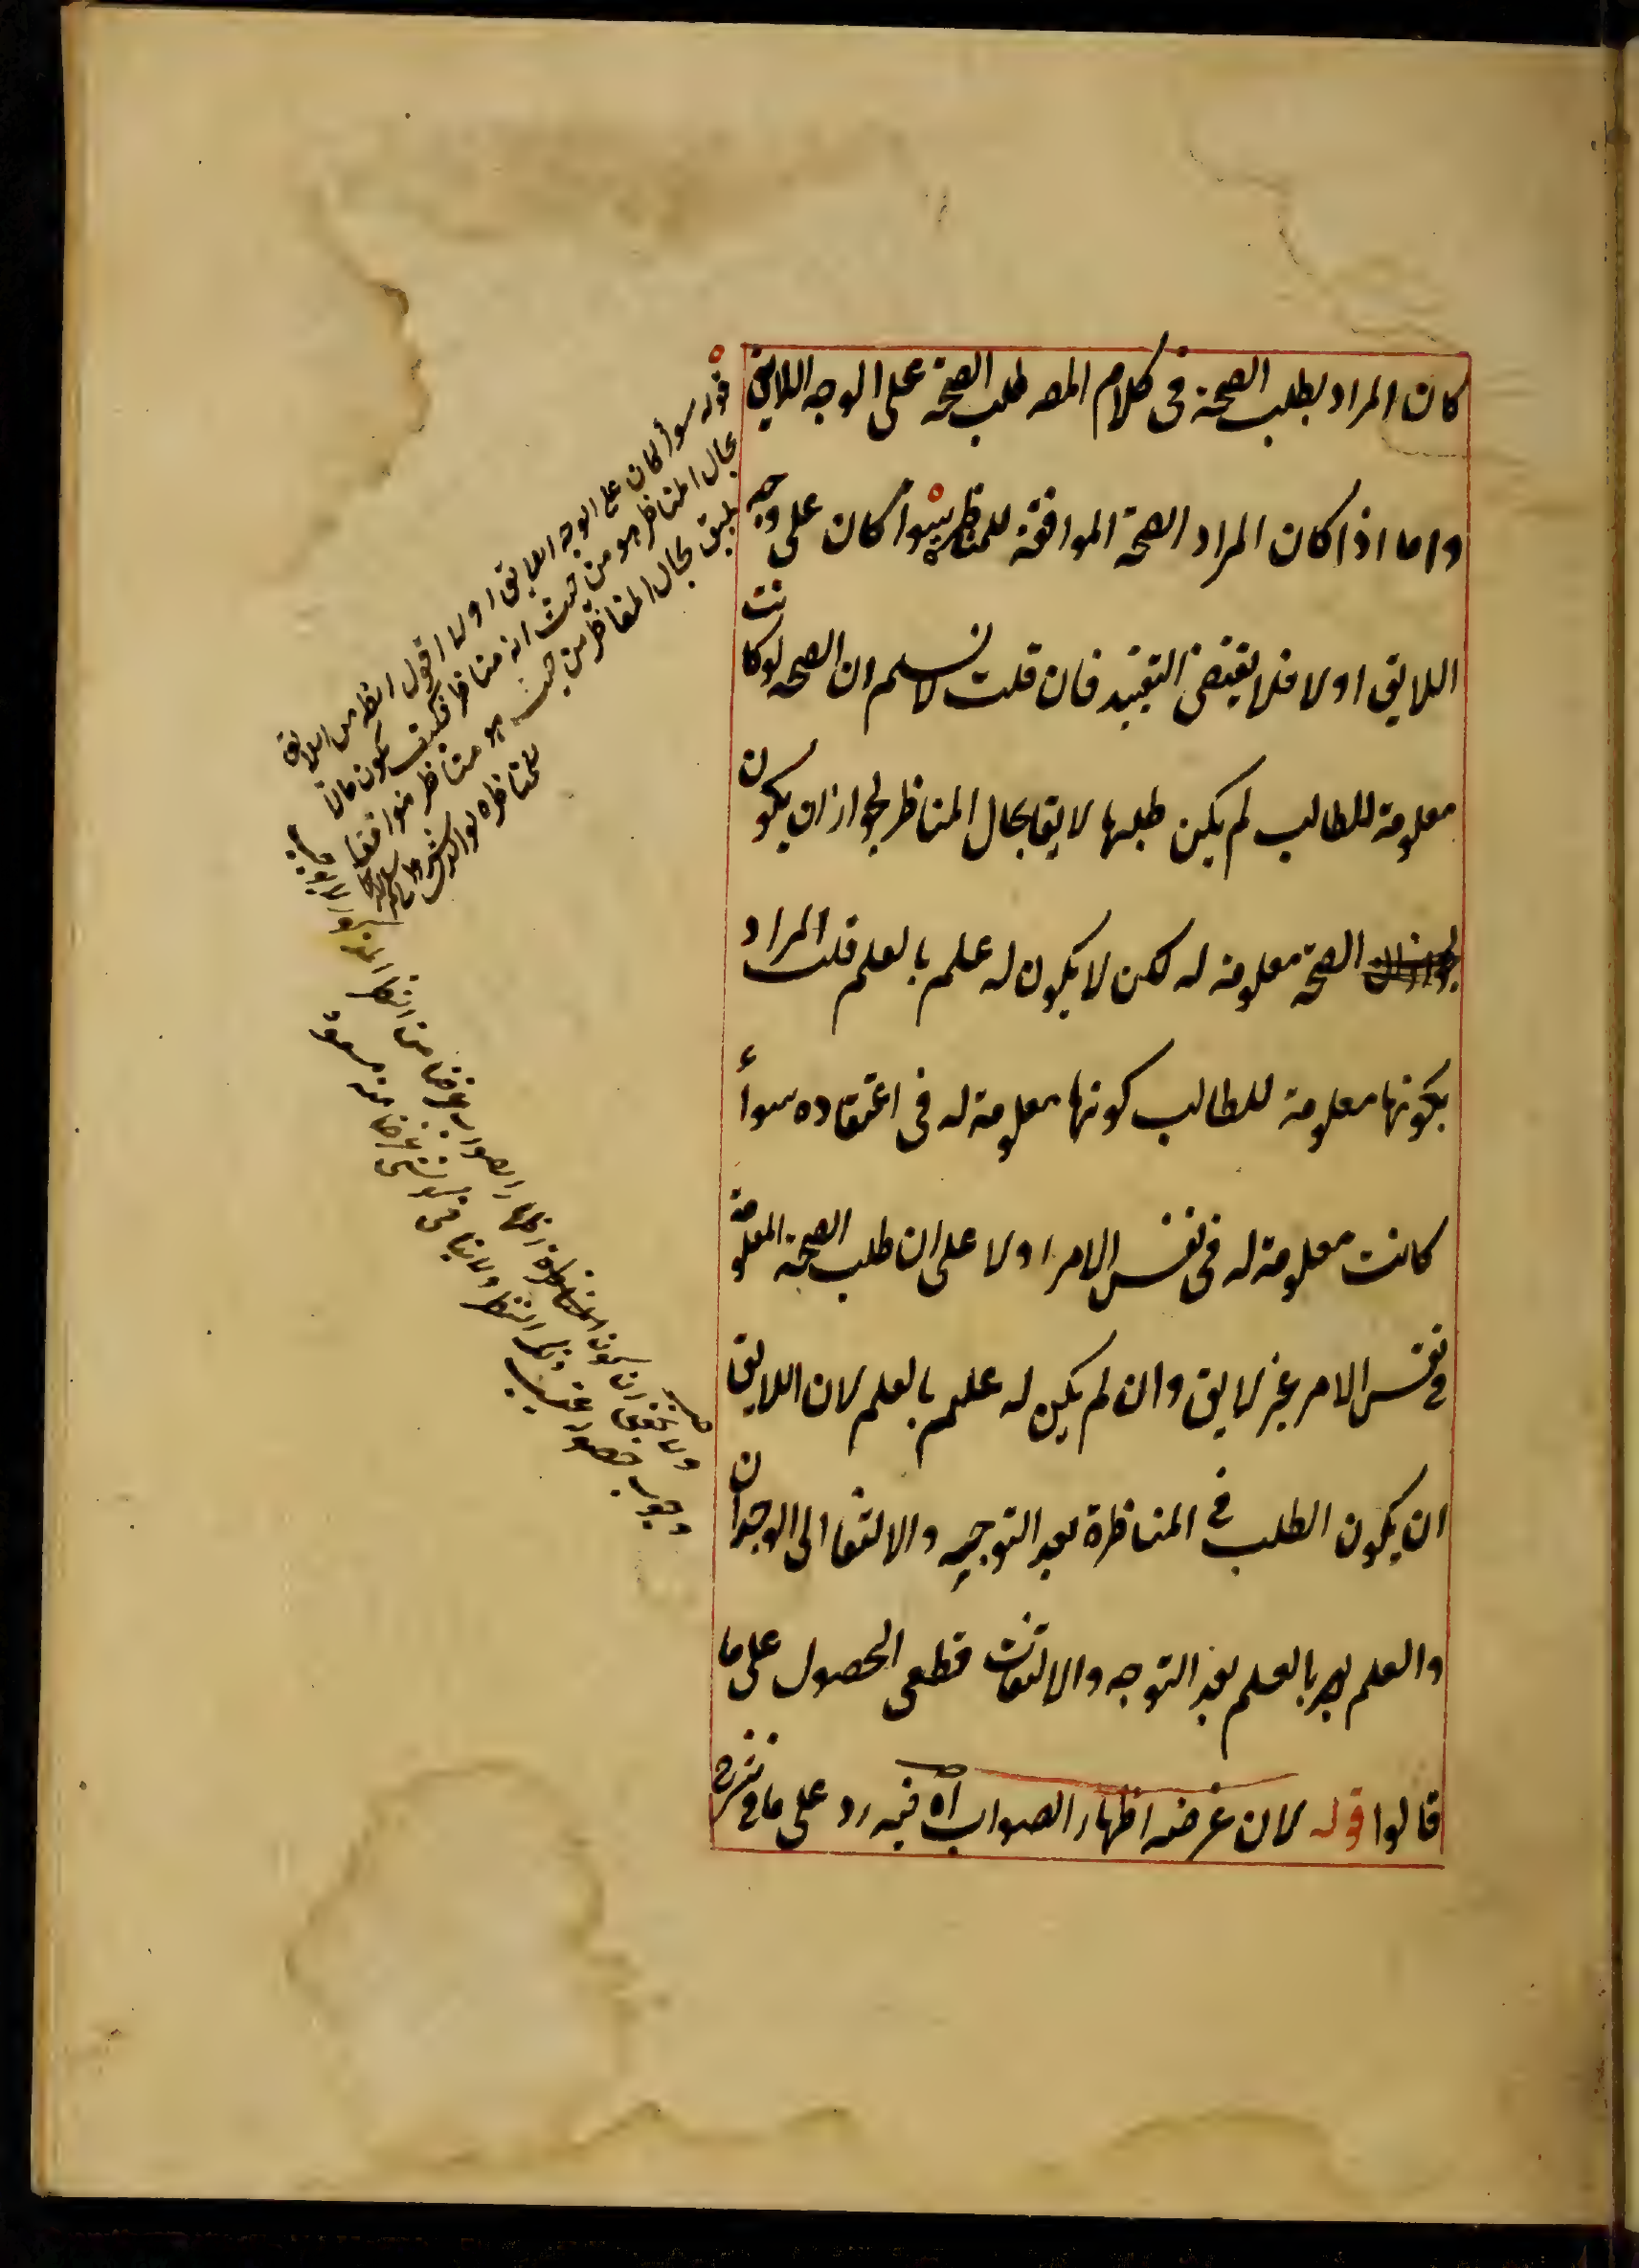 كان المراد بطلب الصحة فى كلام المصـ طلب الصحة على الوجه اللايق
واما اذا كان المراد الصحة الموافقة للمناظره سوأ كان على وجه
اللايق اولا فلا يقتضى التقييد فان قلت لانسلم ان الصحه لو كانت
معلومة للطالب لم يكن طلبها لايقا بحال المناظر لجواز ان يكون
الصحة معلومة له لكن لا يكون له علم بالعلم قلت المراد
بكونها معلومة للطالب كونها معلومة له فى اعتقاده سوأ
كانت معلومة له فى نفس الامر اولا على ان طلب الصحة المعلومة
فى نفس الامر غير لايق وان لم يكن له علم بالعلم لان اللايق
ان يكون الطلب فى المناظرة بعد التوجه والالتفا الى الوجدان
والعلم بالعلم بعد التوجه والالتفات قطعى الحصول على ما
قالوا قوله لان غرضه اظهار الصواب آه فيه رد على ما فى شرح
قوله سوأ كان على الوجه اللايق اولا اقول
بحال المناظر هو من حيث انه مناظر فكيف يكون
يليق بحال المناظر من حيث هو مناظر موافقا
للمناظره
ولا يخفى ان كون المناظرة اظهار الصواب غرضا من النظر
وجوب حصوله عقيب ذلك النظر ولا ينافى كونه غرضا منه